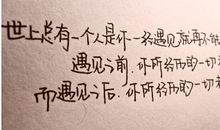 世上总有一个人是你一经遇见就再不能
遇见之前,你所经历的一切
而遇见之后,你所经历的一切